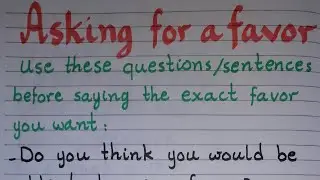 Asking for a favor
Use these questions/sentences
before saying the exact favor
you want:
- Do you think you would be